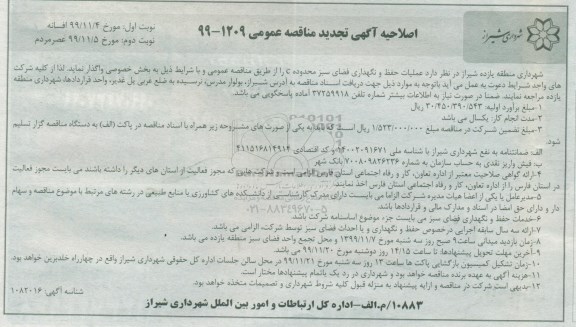 شهرداری شیراز
اصلاحیه آگهی تجدید مناقصه عمومی ۱۲۰۹-۹۹
نوبت اول: مورخ ۹۹/۱۱/۴ افسانه
نوبت دوم: مورخ ۹۹/۱۱/۵ عصرمردم
شهرداری منطقه یازده شیراز در نظر دارد عملیات حفظ و نگهداری فضای سبز محدوده را از طریق مناقصه عمومی و با شرایط ذیل به بخش خصوصی واگذار نماید. لذا از کلیه شرکت
های واجد شرایط دعوت به عمل می آید باتوجه به موارد ذیل جهت دریافت اسناد مناقصه به آدرس شیراز، بولوار مدرس، نرسیده به ضلع غربی پل غدیر، واحد قراردادها، شهرداری منطقه
یازده مراجعه نمایند. ضمنا در صورت نیاز به اطلاعات بیشتر شماره تلفن ۳۷۲۵۹۹۱۸ آماده پاسخگویی می باشد.
۱-مبلغ برآورد اولیه: ۳۰/۴۵۰/۳۹۰/۵۴۳ ریال
۲-مدت انجام کار: یکسال می باشد
۳-مبلغ تضمین شرکت در مناقصه مبلغ ۱/۵۲۳/۰۰۰/۰۰۰ ریال است که باید به یکی از صورت های مشروحه زیر همراه با اسناد مناقصه در پاکت (الف) به دستگاه مناقصه گزار تسلیم
شود.
الف: ضمانتنامه به نفع شهرداری شیراز با شناسه ملی ۱۴۰۰۲۰۹۱۶۷۱ و کد اقتصادی ۴۱۱۵۱۶۸۱۴۹۱۴
ب: فیش واریز نقدی به حساب سازمان به شماره ۷۰۰۸۰۹۸۲۶۲۳۶ بانک شهر
۴-ارائه گواهی صلاحیت معتبر از اداره تعاون، کار و رفاه اجتماعی استان فارس الزامی است و شرکت هایی که مجوز فعالیت از استان های دیگر را داشته باشند می بایست مجوز فعالیت
در استان فارس را از اداره تعاون، کار و رفاه اجتماعی استان فارس اخذ نمایند.
۵-مدیرعامل یا یکی از اعضا هیات مدیره شرکت الزاما می بایست دارای مدرک کارشناسی از دانشکده های کشاورزی یا منابع طبیعی در رشته های مرتبط با موضوع مناقصه و سهام
دار و دارای حق امضا در اسناد و مدارک مالی و قراردادها باشد.
۶-خدمات حفظ و نگهداری فضای سبز می بایست جزء موضوع اساسنامه شرکت باشد.
۷-ارائه سه سال سابقه اجرایی درخصوص حفظ و نگهداری و یا احداث فضای سبز توسط شرکت الزامی می باشد.
۸-زمان بازدید میدانی ساعت ۹ صبح روز سه شنبه مورخ ۱۳۹۹/۱۱/۷ و محل تجمع واحد فضای سبز منطقه یازده می باشد.
۹-آخرین مهلت تحویل پیشنهادها: تا ساعت ۱۴/۱۵ روز دوشنبه مورخ ۹۹/۱۱/۲۰ می باشد.
۱۰-زمان تشکیل کمیسیون بازگشایی پاکت ها ساعت ۱۳ روز سه شنبه مورخ ۹۹/۱۱/۲۱ در محل سالن جلسات اداره کل حقوقی شهرداری شیراز واقع در چهارراه خلدبرین خواهد بود.
۱۱-هزینه آگهی به عهده برنده مناقصه خواهد بود و شهرداری در رد یک یا تمام پیشنهادها مختار است.
۱۲-بدیهی است شرکت در مناقصه و ارایه پیشنهاد به منزله قبول کلیه شروط شهرداری و تصمیمات متخذه خواهد بود.
شناسه آگهی: ۱۰۸۲۰۱۶
۱۰۸۸۳/م.الف-اداره کل ارتباطات و امور بین الملل شهرداری شیراز